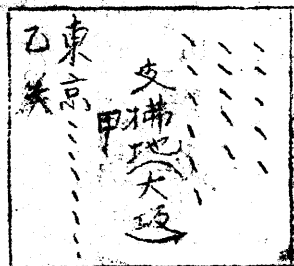 支拂地(大坂)
甲
東京
乙